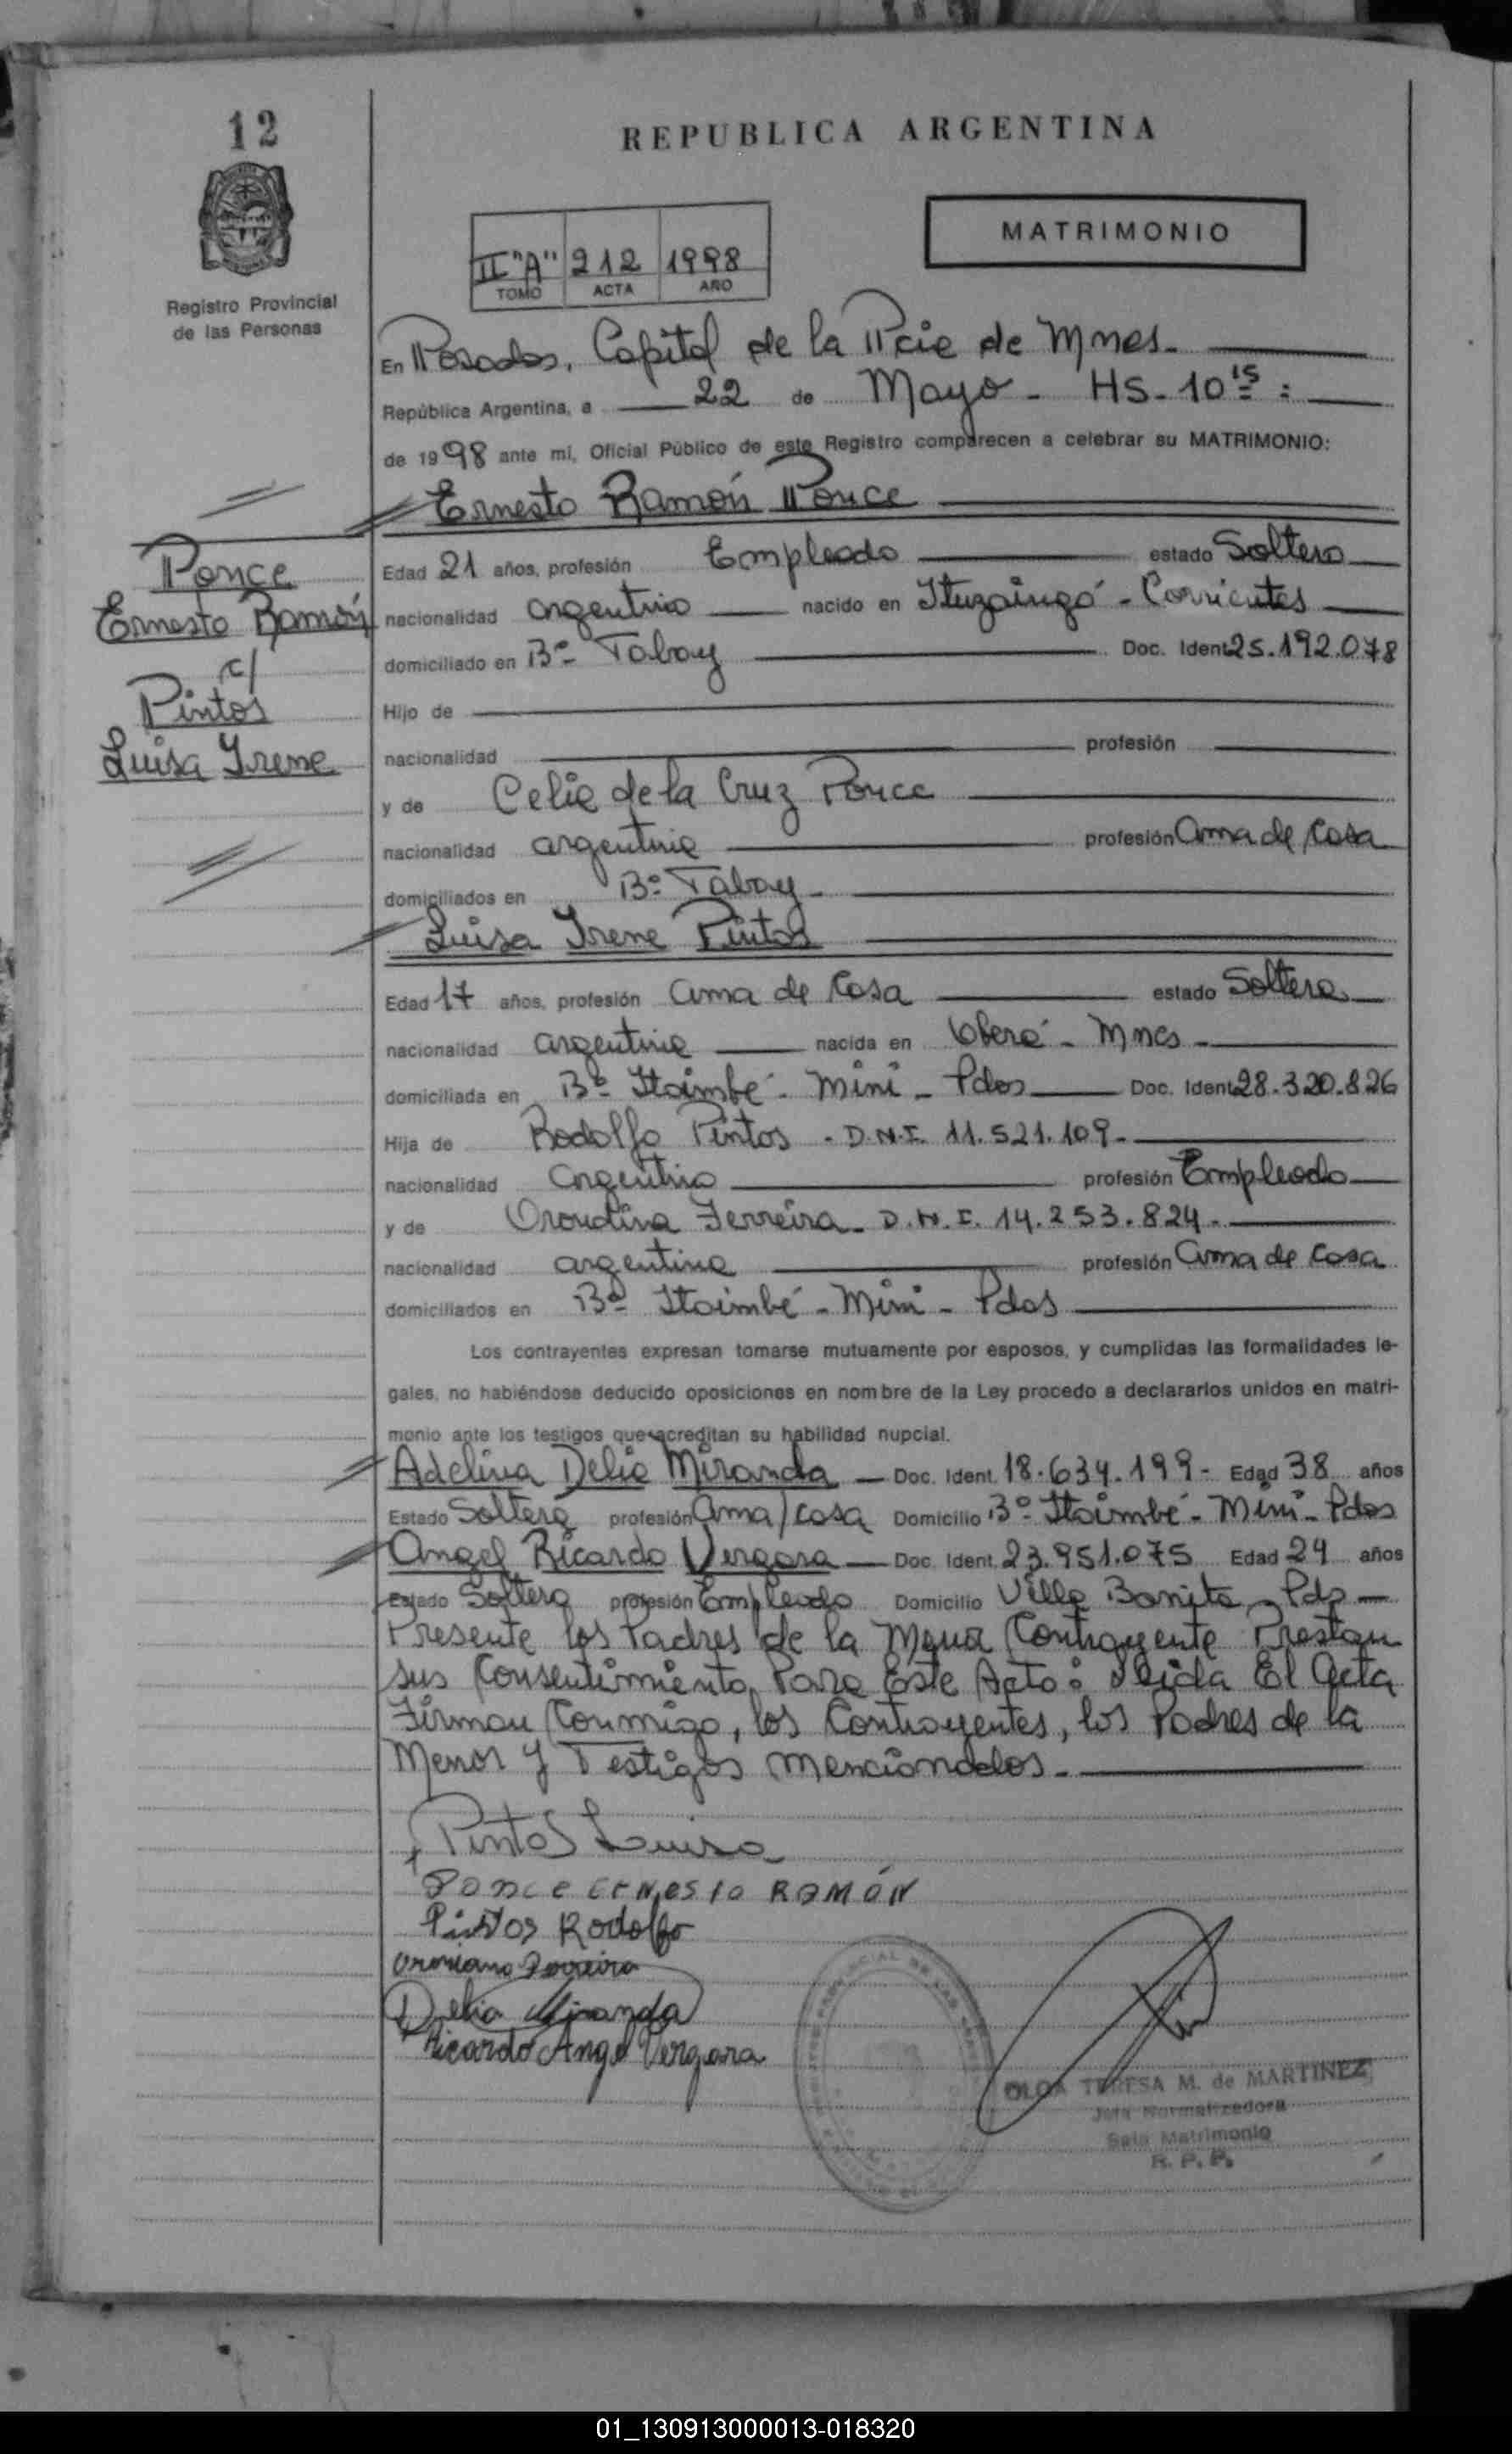 12
REPUBLICA ARGENTINA
MATRIMONIO
II "A" 212 1998
TOMO ACTA AÑO
Registro Provincial
de las Personas
En Posadas, Capital de la Pcia de Mnes.
República Argentina, a 22 de Mayo - HS - 10 15 :
de 1998 ante mí, Oficial Público de este Registro comparecen a celebrar su MATRIMONIO:
Ernesto Ramón Ponce
Ponce
Ernesto Ramón
c/
Pintos
Luisa Irene
Edad 21 años, profesión Empleado estado Soltero
nacionalidad argentino nacido en Ituzaingó - Corrientes
domiciliado en Bº Tabay Doc. Ident 25.192.078
Hijo de
nacionalidad profesión
y de Celia de la Cruz Ponce
nacionalidad argentina profesión ama de casa
domiciliados en Bº Tabay -
Luisa Irene Pintos
Edad 17 años, profesión ama de casa estado Soltera
nacionalidad argentina nacida en Oberá - Mnes -
domiciliada en Bº Itaimbé - Mini - Pdas Doc. Ident 28.320.826
Hija de Rodolfo Pintos - D.N.I. 11.521.109 -
nacionalidad argentino profesión Empleado
y de Ferreira - D.N.I. 14.253.824 -
nacionalidad argentina profesión ama de casa
domiciliados en Bº Itaimbé - Mini - Pdas
Los contrayentes expresan tomarse mutuamente por esposos, y cumplidas las formalidades le-
gales, no habiéndose deducido oposiciones en nombre de la Ley procedo a declararlos unidos en matri-
monio ante los testigos que acreditan su habilidad nupcial.
Adelina Delia Miranda - Doc. Ident. 18.634.199 - Edad 38 años
Estado Soltera profesión ama/casa Domicilio Bº Itaimbé - Mini - Pdas
Angel Ricardo Vergara - Doc. Ident. 23.951.075 Edad 24 años
Estado Soltero profesión Empleado Domicilio Villa Bonita - Pds -
Presente los Padres de la Contrayente Prestan
sus Consentimiento Para Este Acto: Leida El Acta
Firman Conmigo, los Contrayentes, los Padres de la
Menor y Testigos mencionados.
Pintos Luisa
Ponce Ernesto RAMÓN
Pintos Rodolfo
Ferreira
Delia Miranda
Ricardo Angel Vergara
OLGA TERESA M. de MARTINEZ
Jefa Normalizadora
Sala Matrimonio
R. P. P.
01_130913000013-018320